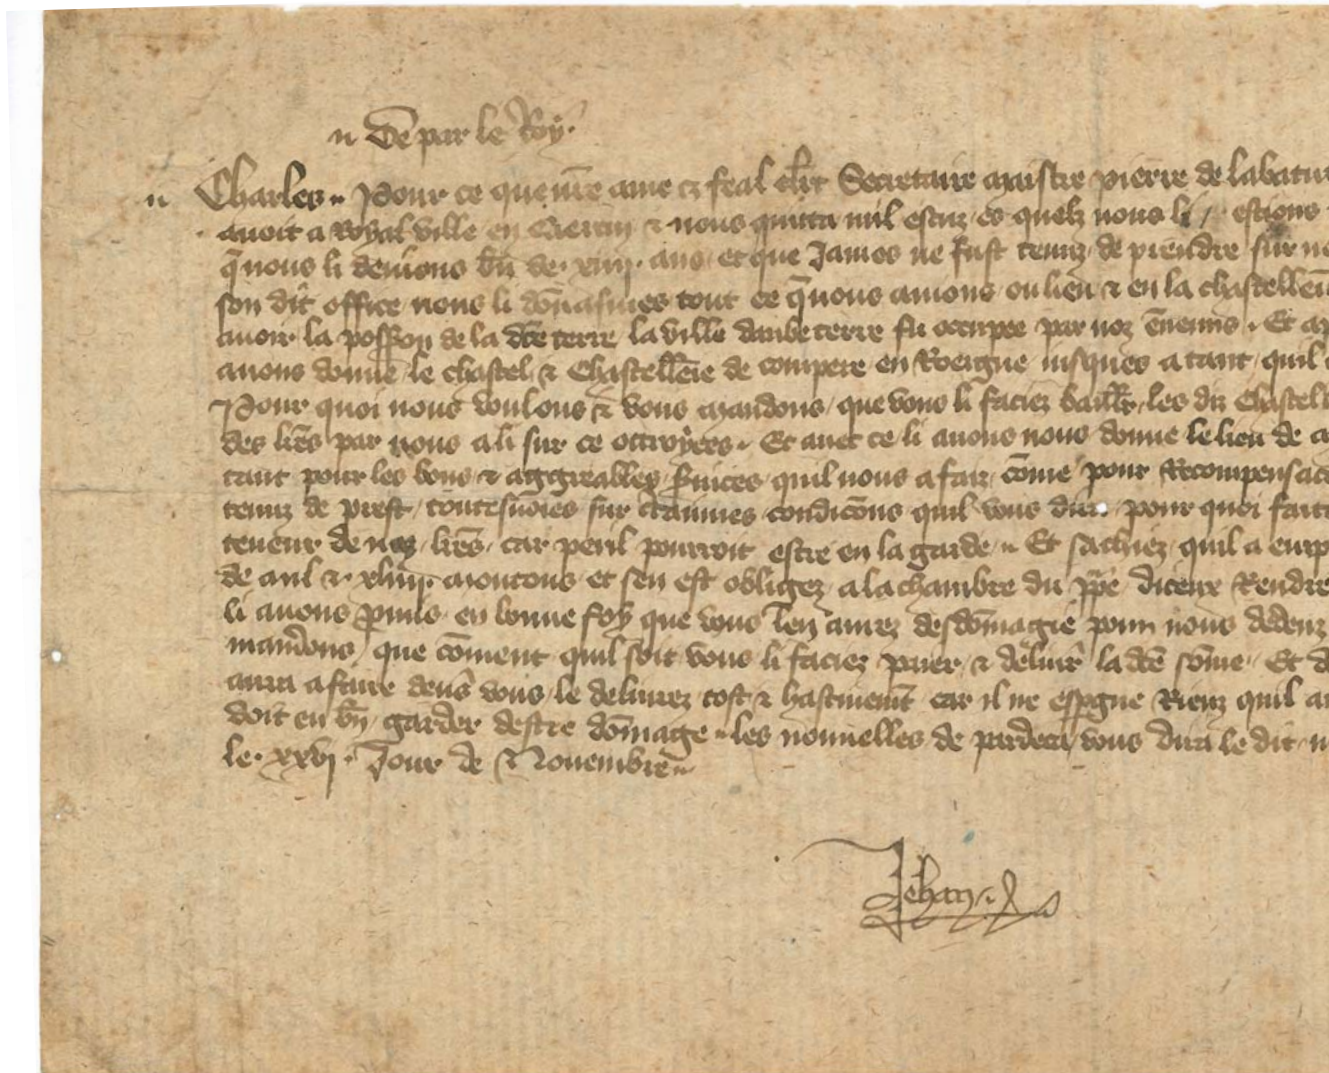 De par le Roy.
Charles. Pour ce que nre ame et feal clerc Secretaire maistre pierre de labatut
avoit a Royal ville en & nous quitta mil escuz es quelz nous li estions
q̄ nous li devions bn̄ de xiiii ans et que Jamés ne fust tenuz de prendre sur
son dit office nous li dōnasmes tout ce q̄ nous avions ou lieu & en la chastellen
avoir la possion de la dc̄e terre la ville daubeterre fu occupee par noz ēnemis. Et
avons donne le chastel & Chastellēie de compere en Roergue iusques a tant quil
Pour quoi nous voulons & vous mandons que vous li faciez baillr les diz Chastel
des lrēs par nous a li sur ce ottroyees. Et avec ce li avons nous donne le lieu de
tant pour les bons & aggreables svices quil nous a faiz cōme pour Recompensac
tenuz de prest toutesvoies sur ctaines condicōns quil vous dira pour quoi
teneur de noz lrēs car peril pourroit estre en la garde. Et sachiez quil a emp
de mil & xliiii moutons et sen est obligez a la chambre du pp̄e diceux Rendre
li avons pmis en bonne foy que vous len aurez desdōmagie pour nous dedenz
mandons que cōment quil soit vous li faciez paier & delivrer la dc̄e sōme. Et
aura a faire devs vous le delivrez tost & hastivemt car il ne espgne Rienz quil
doit en bn̄ garder destre dōmage. les nouvelles de pardeca vous dira le dit
le xxvj. Jour de Novembre.
Jehan